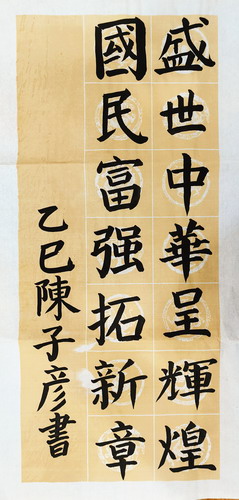 盛世中華呈輝煌
國民富强拓新章
乙巳陳子彦書